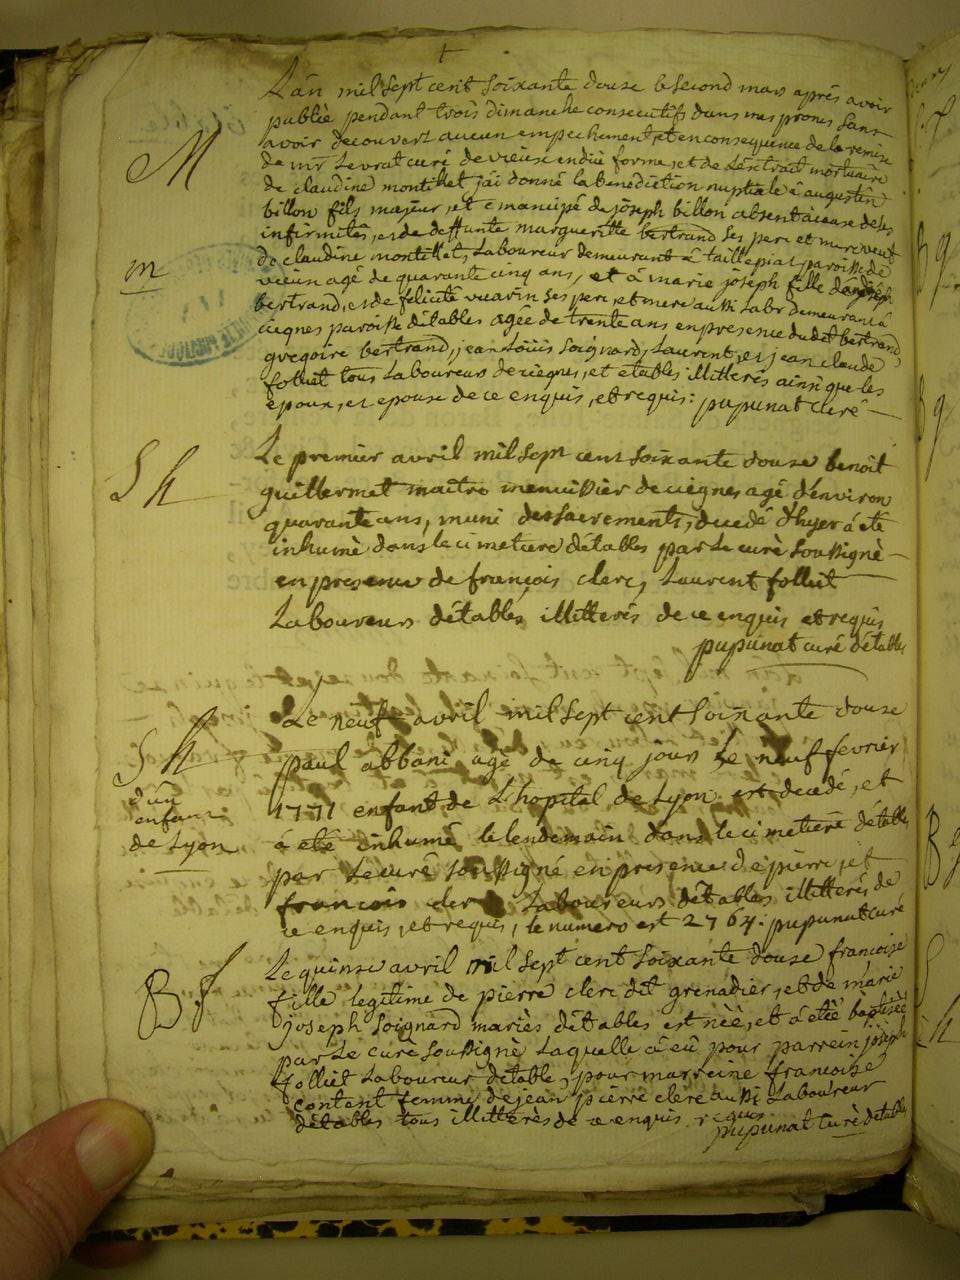 M
m
L'an mil sept cent soixante douse le second mars aprés avoir
publié pendant trois dimanche consecutifs dans mes prones sans
avoir decouvert aucun empechement, et en consequence de la remise
de mr Levrat curé de vieux endüe forme, et de l'éxtrait mortuaire
de claudine montillet j'ai donné la benediction nuptiale á augustin
billon fils majeur, et emancipé de joseph billon absent acause de ses
infirmités, et de deffunte margueritte bertrand ses pere et mere veuf
de claudine montillet, Laboureur demeurant á paroisse de
vieux agé de quarante cinq ans, et á marie joseph fille de joseph
bertrand, et de felicité vuarin ses pere, et mere aussi Labr demeurant á
ciegnes paroisse détables agée de trente ans en presence dudt bertrand
gregoire bertrand, jean Loüis soignard, Laurent, et jean claude
folliet tous Laboureurs de ciegnes, et etables illitterés ainsi que les
epoux, et epouse de ce enquis, et requis: pupunat curé
S h
Le premier avril mil sept cent soixante douse benoit
guillermet maitre menuissier de ciegnes agé d'environ
quarante ans, muni des sacrements, decedé d'hyer á eté
inhumé dans le cimetiere détables par Le curé soussigné
en presence de françois clerc, Laurent folliet
Laboureurs détables illitterés de ce enquis et requis
pupunat curé détables
S h
d'un
enfant
de Lyon
Le neuf avril mil sept cent soixante douse
paul abbani agé de cinq jours le neuf fevrier
1771 enfant de L'hopital de Lyon est decedé, et
á eté inhumé le lendemain dans le cimetiere détables
par Le curé soussigné en presence de pierre, et
francois clerc Laboureurs détables illitterés de
ce enquis, et requis, le numero est 2764: pupunat curé
B f
Le quinse avril mil sept cent soixante douse francoise
fille legitime de pierre clerc dit grenadier, et de marie
joseph soignard mariés détables est née, et á etée baptisée
par Le curé soussigné Laquelle á eû pour parrein joseph
folliet Laboureur détable, pour marreine francoise
contant femme de jean pierre clerc aussi Laboureur
détables tous illitterés de ce enquis requis
pupunat curé détables